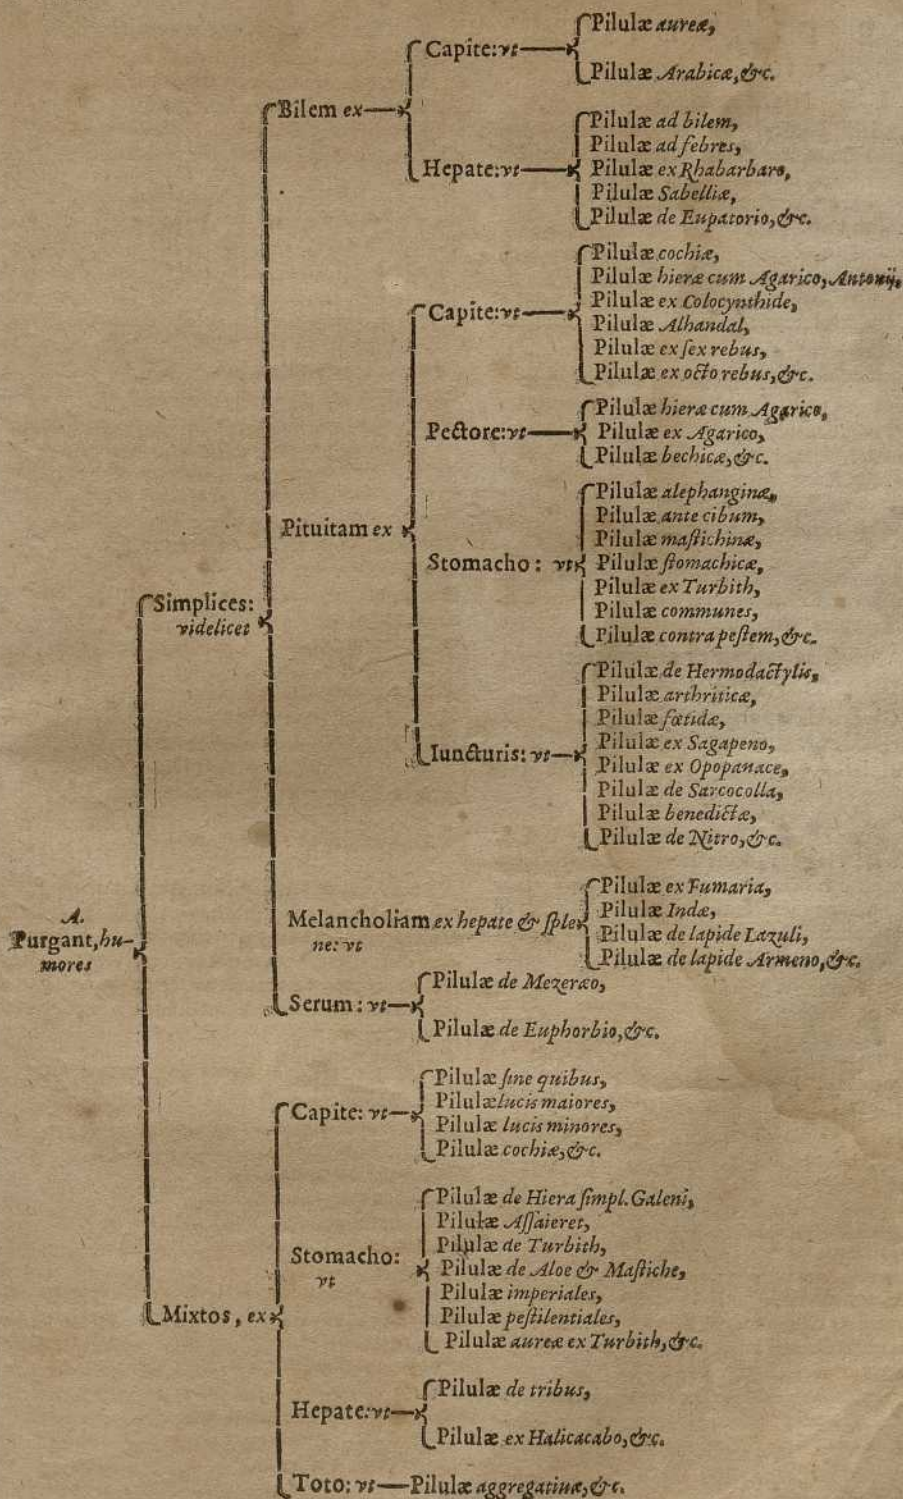 A.
Purgant, hu-
mores
Simplices:
videlicet
Bilem ex
Capite: vt
Pilulæ aureæ,
Pilulæ Arabicæ, &c.
Hepate: vt
Pilulæ ad bilem,
Pilulæ ad febres,
Pilulæ ex Rhabarbaro,
Pilulæ Sabelliæ,
Pilulæ de Eupatorio, &c.
Pituitam ex
Capite: vt
Pilulæ cochiæ,
Pilulæ hieræ cum Agarico, Antonij,
Pilulæ ex Colocynthide,
Pilulæ Alhandal,
Pilulæ ex ſex rebus,
Pilulæ ex octo rebus, &c.
Pectore: vt
Pilulæ hieræ cum Agarico,
Pilulæ ex Agarico,
Pilulæ bechicæ, &c.
Stomacho: vt
Pilulæ alephanginæ,
Pilulæ ante cibum,
Pilulæ maſtichinæ,
Pilulæ ſtomachicæ,
Pilulæ ex Turbith,
Pilulæ communes,
Pilulæ contra peſtem, &c.
Iuncturis: vt
Pilulæ de Hermodactylis,
Pilulæ arthriticæ,
Pilulæ fœtidæ,
Pilulæ ex Sagapeno,
Pilulæ ex Opopanace,
Pilulæ de Sarcocolla,
Pilulæ benedictæ,
Pilulæ de Nitro, &c.
Melancholiam ex hepate & ſple
ne: vt
Pilulæ ex Fumaria,
Pilulæ Indæ,
Pilulæ de lapide Lazuli,
Pilulæ de lapide Armeno, &c.
Serum: vt
Pilulæ de Mezeræo,
Pilulæ de Euphorbio, &c.
Mixtos, ex
Capite: vt
Pilulæ ſine quibus,
Pilulæ lucis maiores,
Pilulæ lucis minores,
Pilulæ cochiæ, &c.
Stomacho:
vt
Pilulæ de Hiera ſimpl. Galeni,
Pilulæ Aſſaieret,
Pilulæ de Turbith,
Pilulæ de Aloe & Maſtiche,
Pilulæ imperiales,
Pilulæ peſtilentiales,
Pilulæ aureæ ex Turbith, &c.
Hepate: vt
Pilulæ de tribus,
Pilulæ ex Halicacabo, &c.
Toto: vt
Pilulæ aggregatiuæ, &c.